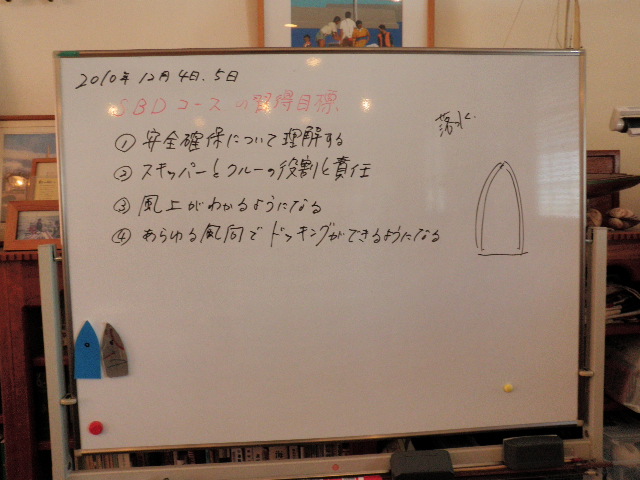 2010年12月4日、5日
SBDコースの習得目標
① 安全確保について理解する
② スキッパーとクルーの役割と責任
③ 風上がわかるようになる
④ あらゆる風向でドッキングができるようになる
落水